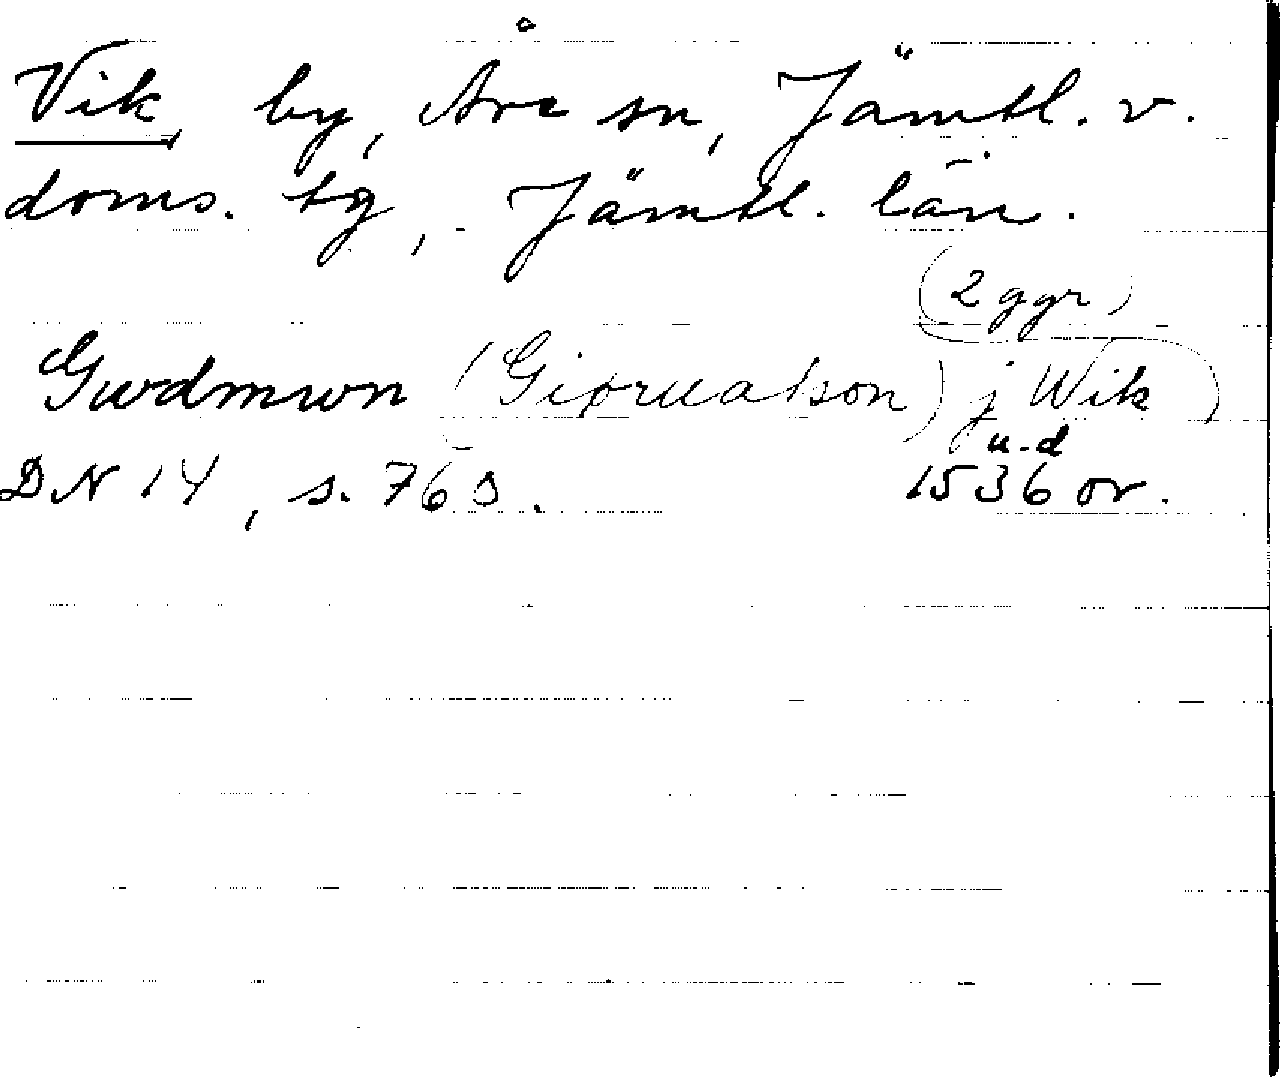 Vik, by, Åre sn, Jämtl. v.
doms. tg, Jämtl. län.
(2 ggr)
Gwdmwn (Giorualson) j Wik
u.d
DN 14, s. 765. 1536 or.